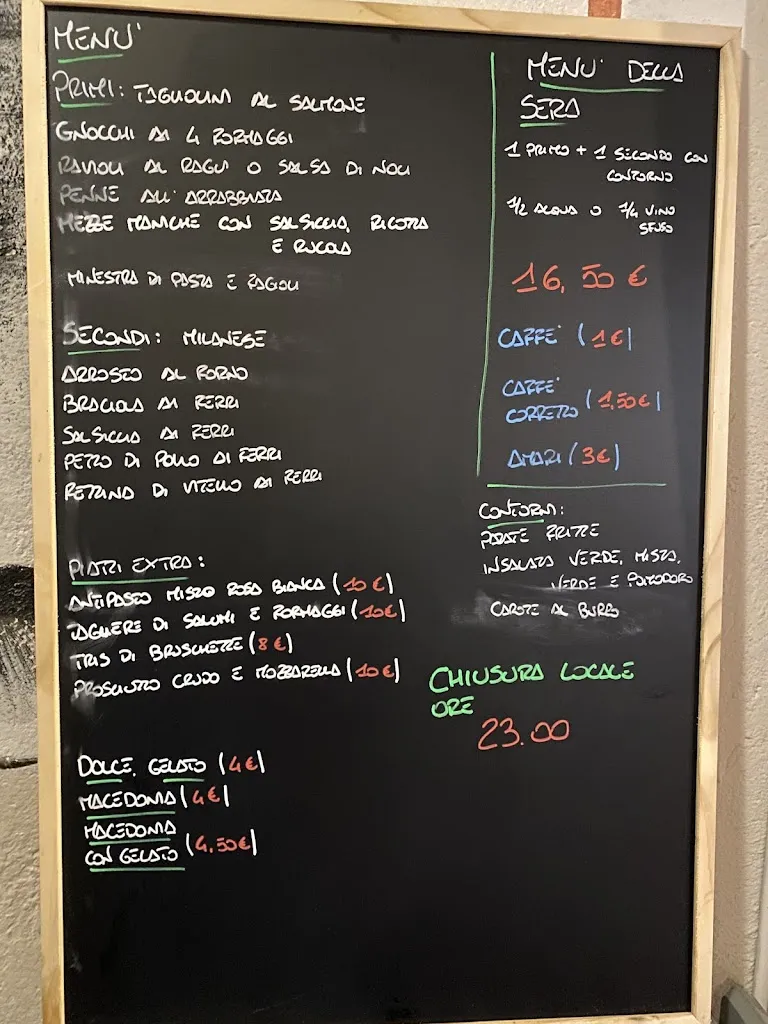 MENU'
PRIMI: TAGLIOLINI AL SALMONE
GNOCCHI AI 4 FORMAGGI
RAVIOLI AL RAGU O SALSA DI NOCI
PENNE ALL'ARRABBIATA
MEZZE MANICHE CON SALSICCIA, RICOTTA
E RUCOLA
MINESTRA DI PASTA E FAGIOLI
SECONDI: MILANESE
ARROSTO AL FORNO
BRACIOLA AI FERRI
SALSICCIA AI FERRI
PETTO DI POLLO AI FERRI
FETTINA DI VITELLO AI FERRI
PIATTI EXTRA:
ANTIPASTO MISTO ROSA BIANCA (10 €)
TAGLIERE DI SALUMI E FORMAGGI (10€)
TRIS DI BRUSCHETTE (8 €)
PROSCIUTTO CRUDO E MOZZARELLA (10€)
DOLCE, GELATO (4€)
MACEDONIA (4€)
MACEDONIA
CON GELATO (4,50€)
MENU' DELLA
SERA
1 PRIMO + 1 SECONDO CON
CONTORNO
1/2 ACQUA O 1/4 VINO
SFUSO
16,50 €
CAFFE' (1€)
CAFFE'
CORRETTO (1,50€)
AMARI (3€)
CONTORNI:
PATATE FRITTE
INSALATA VERDE, MISTA,
VERDE E POMODORO
CAROTE AL BURRO
CHIUSURA LOCALE
ORE
23.00